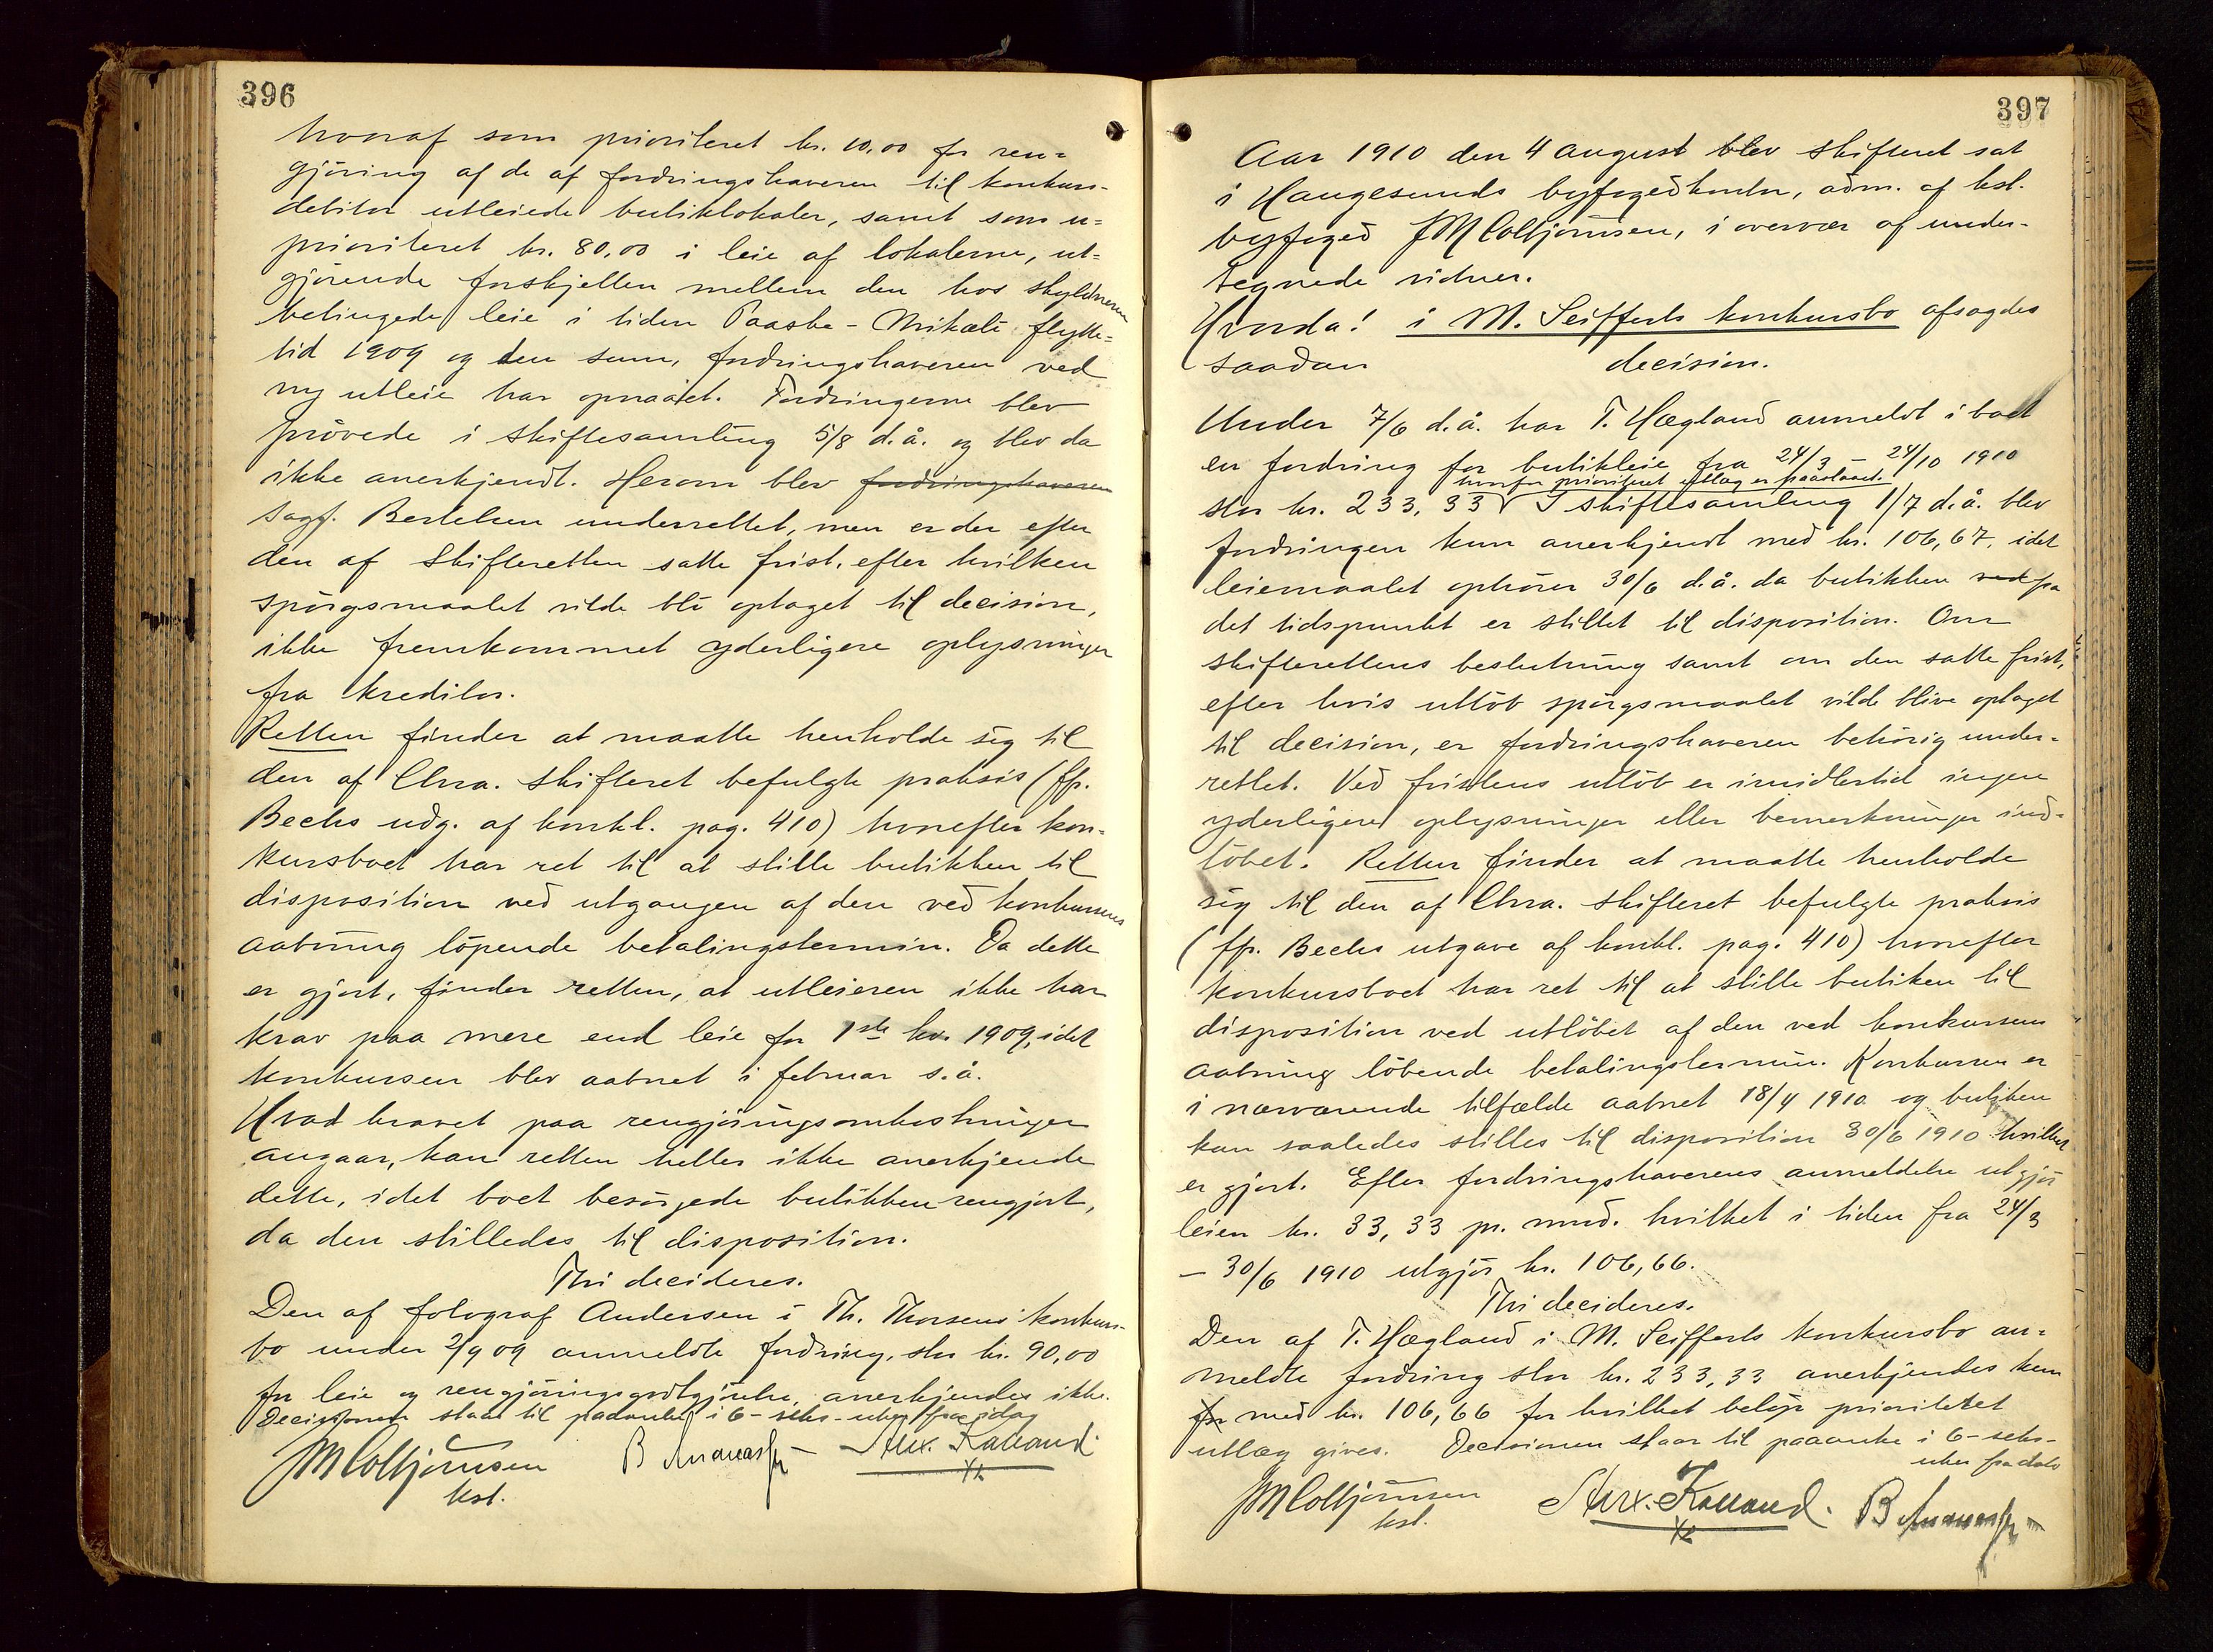 396
hvoraf som prioriteret kr. 10,00 for ren=
gjöring af de af fordringshaveren til konkurs-
debitor utleiede butiklokaler, samt som u=
prioriteret kr. 80,00 i leie af lokalerne, ut=
gjörende forskjellen mellem den hos skyldneren
betingede leie i tiden Paaske - Mikæli flytte=
tid 1909 og den sum, fordringshaveren ved
ny utleie har opnaaet. Fordringerne blev
prövede i skiftesamling 5/8 d.å. og blev da
ikke anerkjendt. Herom blev fordringshaveren
sagf. Bertelsen underrettet, men er der efter
den af skifteretten satte frist, efter hvilken
spörgsmaalet vilde bli optaget til decision,
ikke fremkommet yderligere oplysninger
fra kreditor.
Retten finder at maatte henholde sig til
den af Chra. skifteret befulgte praksis (jfr.
Bechs udg. af konkl. pag. 410) hvorefter kon-
kursboet har ret til at stille butikken til
disposition ved utgangen af den ved konkursens
aabning löpende betalingstermin. Da dette
er gjort, finder retten, at utleieren ikke har
krav paa mere end leie for 1ste kv. 1909, idet
konkursen blev aabnet i februar s.å.
Hvad kravet paa rengjöringsomkostninger
angaar, kan retten heller ikke anerkjende
dette, idet boet besörgede butikken rengjort,
da den stilledes til disposition.
Thi decideres.
Den af fotograf Andersen i Th. Thorsens konkurs-
bo under 2/4 09 anmeldte fordring, stor kr. 90,00
for leie og rengjöringsgodtgjörelse, anerkjendes ikke.
Decisionen staar til paaanke i 6-seks-uker fra idag
JM Colbjörnsen
kst.
Alex. Kalland
397
Aar 1910 den 4 august blev skifteret sat
i Haugesunds byfogedkontor, adm. af kst.
byfoged JM Colbjörnsen, i overvær af under-
tegnede vidner.
Hvorda! i M. Seifferts konkursbo afsagdes
saadan decision.
Under 7/6 d.å. har T. Hægland anmeldt i boet
en fordring for butikleie fra 24/3 - 24/10 1910
hvorfor prioriteret utlæg er paastaaet.
stor kr. 233,33 I skiftesamling 1/7 d.å. blev
fordringen kun anerkjendt med kr. 106,67, idet
leiemaalet ophörer 30/6 d.å. da butikken ved paa
det tidspunkt er stillet til disposition. Om
skifterettens beslutning samt om den satte frist,
efter hvis utlöb spörgsmaalet vilde blive optaget
til decision, er fordringshaveren behörig under-
rettet. Ved fristens utlöb er imidlertid ingen
yderligere oplysninger eller bemerkninger ind-
löbet. Retten finder at maatte henholde
sig til den af Chra. skifteret befulgte praksis
(jfr. Bechs utgave af konkl. pag. 410) hvorefter
konkursboet har ret til at stille butiken til
disposition ved utlöbet af den ved konkursens
aabning löbende betalingstermin. Konkursen er
i nærværende tilfælde aabnet 18/4 1910 og butiken
kan saaledes stilles til disposition 30/6 1910 hvilket
er gjort. Efter fordringshaverens anmeldelse utgjör
leien kr. 33,33 pr. mnd. hvilket i tiden fra 24/3
- 30/6 1910 utgjör kr. 106,66.
Thi decideres.
Den af T. Hægland i M. Seifferts konkursbo an=
meldte fordring stor kr. 233,33 anerkjendes kun
for med kr. 106,66 for hvilket belöp prioriteret
utlæg gives. Decisionen staar til paaanke i 6-seks-
uker fra dato
JM Colbjörnsen
kst.
Alex. Kalland.